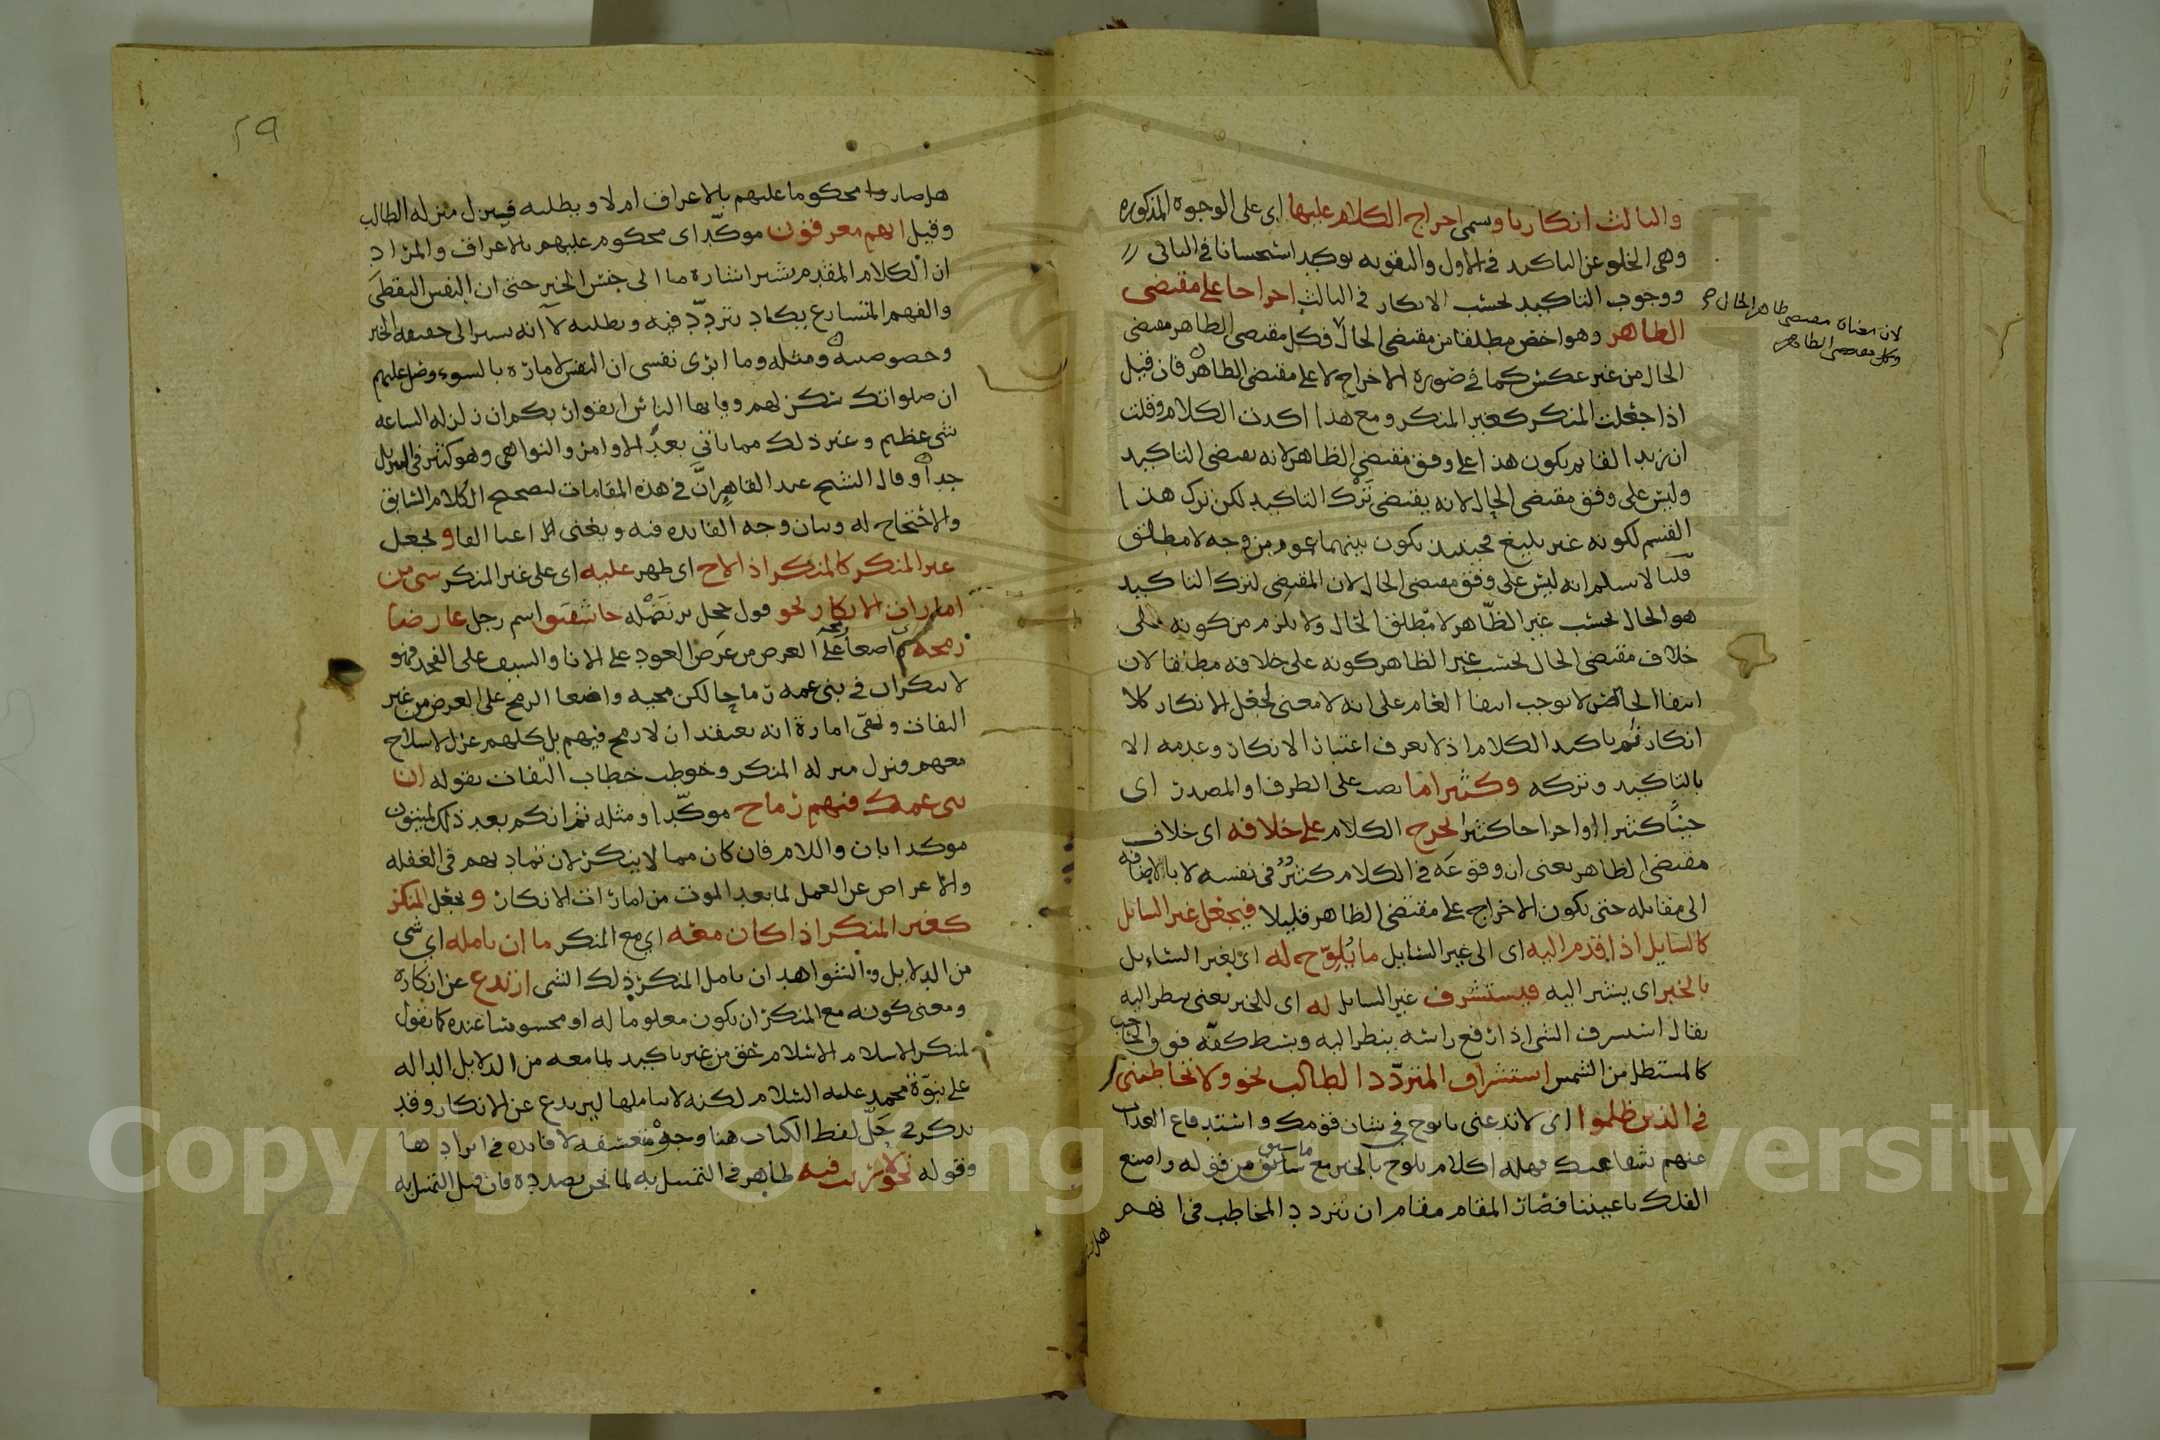 والثالث انكاريا وسمى اخراج الكلام عليها اى على الوجوه المذكوره
وهى الخلو عن التاكيد فى الاول والتقويه بوكيد استحسانا فى الثانى
ووجوب التاكيد بحسب الانكار فى الثالث اخراجا على مقتضى
الظاهر وهو اخص مطلقا من مقتضى الحال فكل مقتضى الظاهر مقتضى
الحال من غير عكس كما فى صورة الاخراج لا على مقتضى الظاهر فان قيل
اذا جعلت المنكر كغير المنكر ومع هذا اكدت الكلام وقلت
ان زيدا لقايم يكون هذا على وفق مقتضى الظاهر لانه يقتضى التاكيد
وليس على وفق مقتضى الحال لانه يقتضى ترك التاكيد لكن ترك هذا
القسم لكونه غير بليغ فحينئذ يكون بينهما عموم من وجه لا مطلق
قلنا لا نسلم انه ليس على وفق مقتضى الحال لان المقتضى لترك التاكيد
هو الحال بحسب غير الظاهر لا مطلق الحال ولا يلزم من كونه على
خلاف مقتضى الحال بحسب غير الظاهر كونه على خلافه مطلقا لان
انتفا الخاص لا يوجب انتفا العام على انه لا معنى لجعل الانكار كلا
انكار ثم تاكيد الكلام اذ لا يعرف اعتبار الانكار وعدمه الا
بالتاكيد وتركه وكثيرا ما نصب على الظرف او المصدر اى
حينا كثيرا او اخراجا كثيرا يخرج الكلام على خلافه اى خلاف
مقتضى الظاهر يعنى ان وقوعه فى الكلام كثير فى نفسه لا بالاضافه
الى مقابله حتى يكون الاخراج على مقتضى الظاهر قليلا فيجعل غير السائل
كالسايل اذا قدم اليه اى الى غير السايل ما يلوح له اى لغير السايل
بالخبر اى يشير اليه فيستشرف غير السايل له اى للخبر يعنى ينظر اليه
يقال استشرف الشى اذا رفع راسه ينظر اليه وبسط كفه فوق الحاجب
كالمستظل من الشمس استشراف المتردد الطالب نحو ولا تخاطبنى
فى الذين ظلموا اى لا تدعنى يا نوح فى شان قومك واستدفاع العذاب
عنهم بشفاعتك فهذا كلام يلوح بالخبر مع ما سبق من قوله واصنع
الفلك باعيننا فصار المقام مقام ان يتردد المخاطب فى انهم
هل
لان معناه مقتضى ظاهر الحال
وكل مقتضى الظاهر
هل صاروا محكوما عليهم بالاغراق ام لا ويطلبه فينزل منزله الطالب
وقيل انهم مغرقون موكدا اى محكوم عليهم بالاغراق والمراد
ان الكلام المقدم يشير اشارة ما الى جنس الخبر حتى ان النفس اليقظى
والفهم المتسارع يكاد يتردد فيه ويطلبه لا انه يشير الى حقيقه الخبر
وخصوصيته ومثله وما ابرى نفسى ان النفس لامارة بالسوء وصل عليهم
ان صلواتك سكن لهم ويايها الناس اتقوا ربكم ان زلزله الساعه
شى عظيم وغير ذلك مما ياتى بعد الاوامر والنواهى وهو كثير فى التنزيل
جدا وقال الشيخ عبد القاهر ان فى هذه المقامات لتصحيح الكلام السابق
والاحتجاج له وبيان وجه الفايده فيه ويغنى غنا الفا ويجعل
غير المنكر كالمنكر اذا لاح اى ظهر عليه اى على غير المنكر شى من
امارات الانكار نحو قول حجل بن نضله جا شقيق اسم رجل عارضا
رمحه واضعا على العرض من عرض العود على الانا والسيف على الفخذ فهو
لا ينكر ان فى بنى عمه رماحا لكن مجيه واضعا الرمح على العرض من غير
التفات وتهيى امارة انه يعتقد ان لا رمح فيهم بل كلهم عزل لا سلاح
معهم فنزل منزله المنكر وخوطب خطاب التفات بقوله ان
بنى عمك فيهم رماح موكدا ومثله ثم انكم بعد ذلك لميتون
موكدا بان واللام فان كان مما لا ينكر لان تماديهم فى الغفله
والاعراض عن العمل لما بعد الموت من امارات الانكار ويجعل المنكر
كغير المنكر اذا كان معه اى مع المنكر ما ان تامله اى شى
من الدلايل والشواهد ان تامل المنكر ذلك الشى ارتدع عن انكاره
ومعنى كونه مع المنكر ان يكون معلوما له او محسوسا عنده كما تقول
لمنكر الاسلام الاسلام حق من غير تاكيد لما معه من الدلايل الداله
على نبوة محمد عليه السلام لكنه لا يتاملها ليرتدع عن الانكار وقد
يذكر فى حل لفظ الكتاب هنا وجوه متعسفه لا فايده فى ايرادها
وقوله نحو لا ريب فيه ظاهر فى التمثيل به لما نحن بصدده فان قيل التمثيل به
٢٩